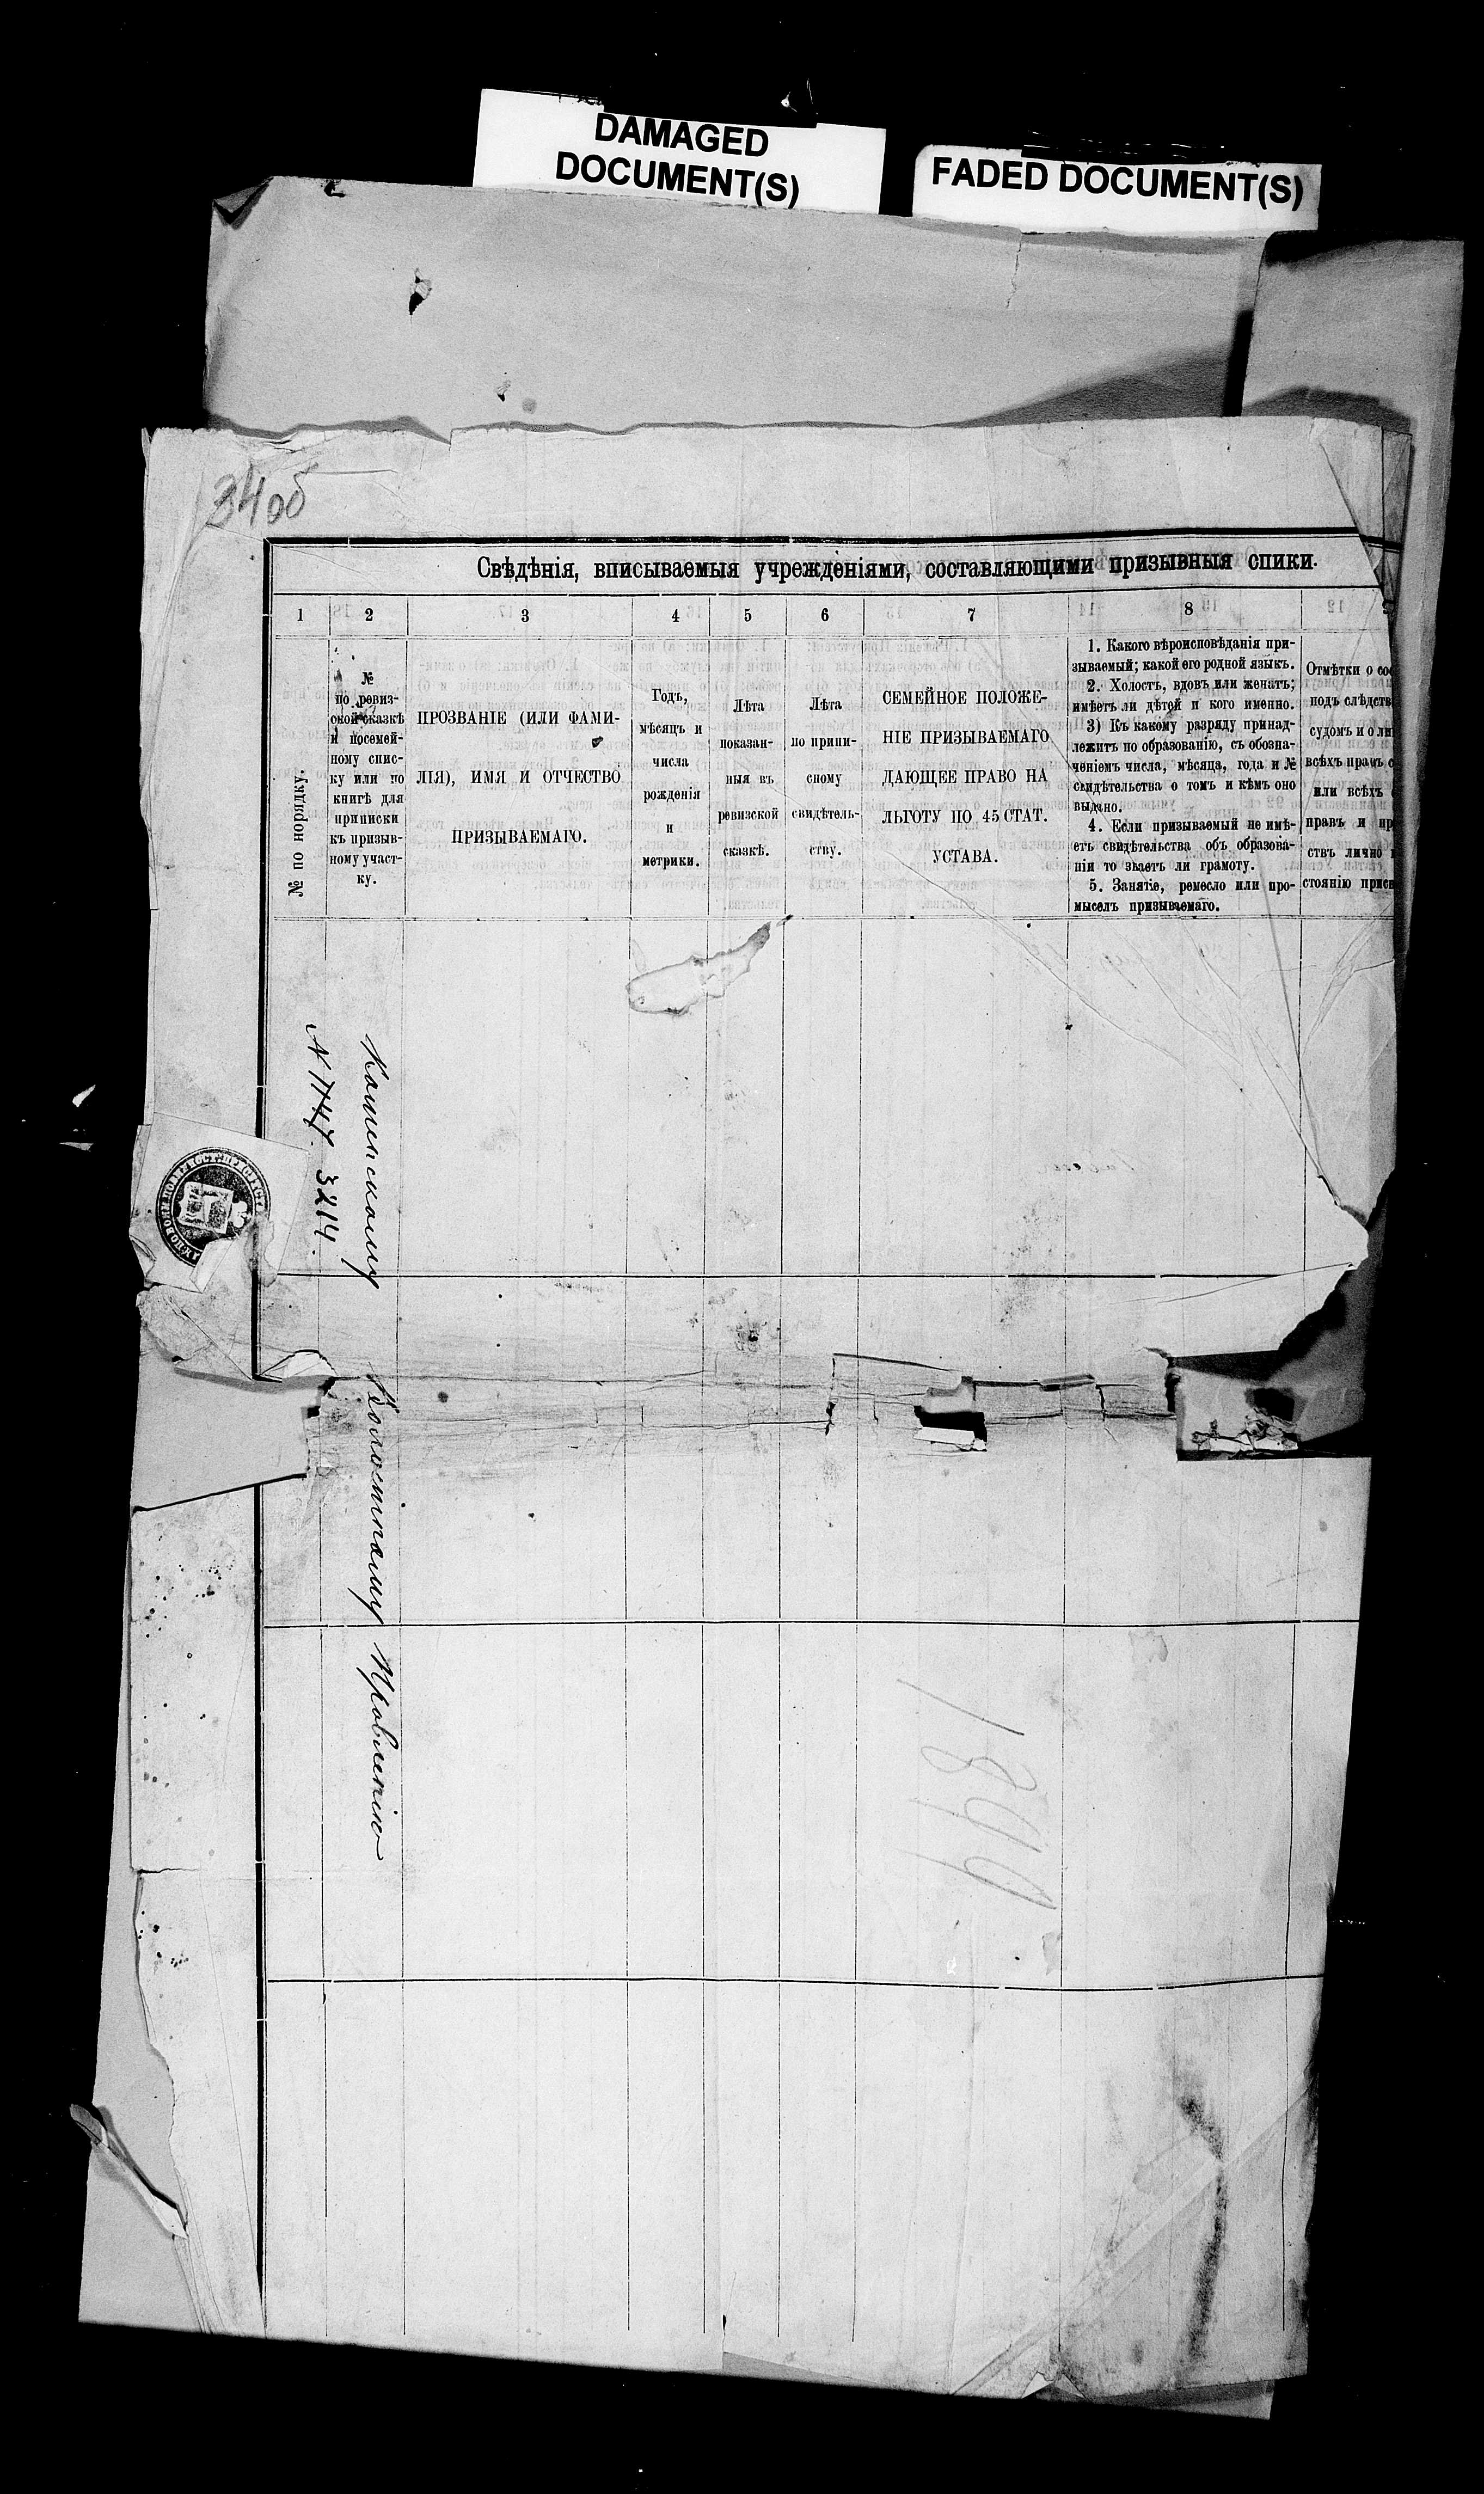 DAMAGED
DOCUMENT(S)
FADED DOCUMENT(S)
34об
Свѣдѣнія, вписываемыя учрежденіями, составляющими призывныя спики.
1 2 3 4 5 6 7 8
№ по порядку.
№
по ревиз-
ской сказкѣ
и посемей-
ному спис-
ку или по
книгѣ для
приписки
къ призыв-
ному участ-
ку.
ПРОЗВАНІЕ (ИЛИ ФАМИ-
ЛІЯ), ИМЯ И ОТЧЕСТВО
ПРИЗЫВАЕМАГО.
Годъ,
мѣсяцъ и
числа
рожденія
и
метрики.
Лѣта
показан-
ныя въ
ревизской
сказкѣ.
Лѣта
по припи-
сному
свидѣтель-
ству.
СЕМЕЙНОЕ ПОЛОЖЕ-
НІЕ ПРИЗЫВАЕМАГО
ДАЮЩЕЕ ПРАВО НА
ЛЬГОТУ ПО 45 СТАТ.
УСТАВА.
1. Какого вѣроисповѣданія при-
зываемый; какой его родной языкъ.
2. Холостъ, вдовъ или женатъ;
имѣетъ ли дѣтей и кого именно.
3) Къ какому разряду принад-
лежитъ по образованію, съ обозна-
ченіемъ числа, мѣсяца, года и №
свидѣтельства о томъ и кѣмъ оно
выдано.
4. Если призываемый не имѣ-
етъ свидѣтельства объ образова-
ніи то знаетъ ли грамоту.
5. Занятіе, ремесло или про-
мыселъ призываемаго.
Отмѣтки о со
подъ слѣдств
судомъ и о ли
всѣхъ правъ с
или всѣхъ
правъ и пр
ствъ лично
стоянію присв
Каменскому Волостному Правленію
3214.